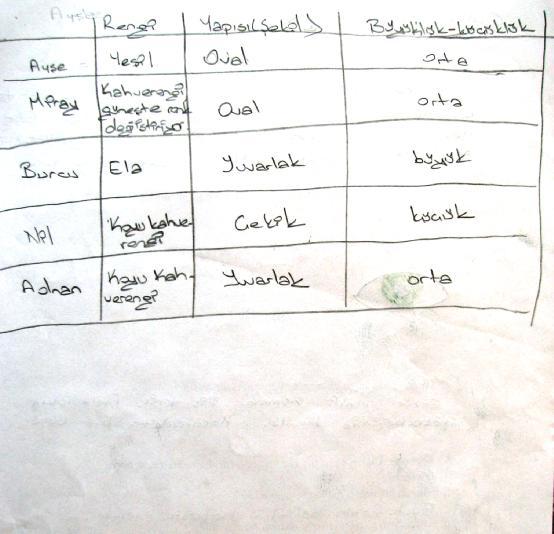 Rengi Yapısı (Şekil) Büyüklük-küçüklük
Ayşe Yeşil Oval orta
Miray Kahverengi güneşte renk değiştiriyor Oval orta
Burcu Ela Yuvarlak büyük
Nil Koyu kahverengi Çekik küçük
Adnan Koyu Kahverengi Yuvarlak orta